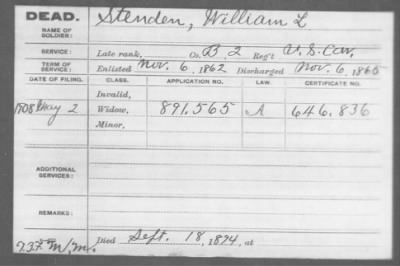 DEAD.
NAME OF SOLDIER:
Stenden, William L
SERVICE:
Late rank, Co. B, 2 Reg't U.S. Cav.
TERM OF SERVICE:
Enlisted Nov. 6, 1862 Discharged Nov. 6, 1865
DATE OF FILING. CLASS. APPLICATION NO. LAW. CERTIFICATE NO.
Invalid,
1908 May 2 Widow, 891,565 A 646,836
Minor,
ADDITIONAL SERVICES:
REMARKS:
Died Sept. 18, 1894, at